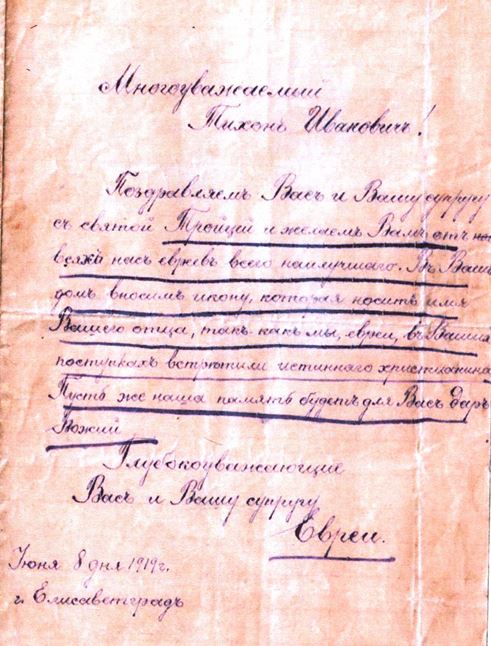 Многоуважаемый
Тихонъ Ивановичъ!
Поздравляемъ Васъ и Вашу супругу
съ святой Троицей и желаемъ Вамъ отъ
всехъ насъ евреевъ всего наилучшаго. Въ Вашъ
домъ вносимъ икону, которая носитъ имя
Вашего отца, такъ какъ мы, евреи, въ Вашихъ
поступкахъ встрѣтили истиннаго христианина
Пусть же наша память будетъ для Васъ Даръ
Божий
Глубокоуважающие
Васъ и Вашу супругу
Евреи.
Июня 8 дня 1919 г.
г. Елисаветградъ